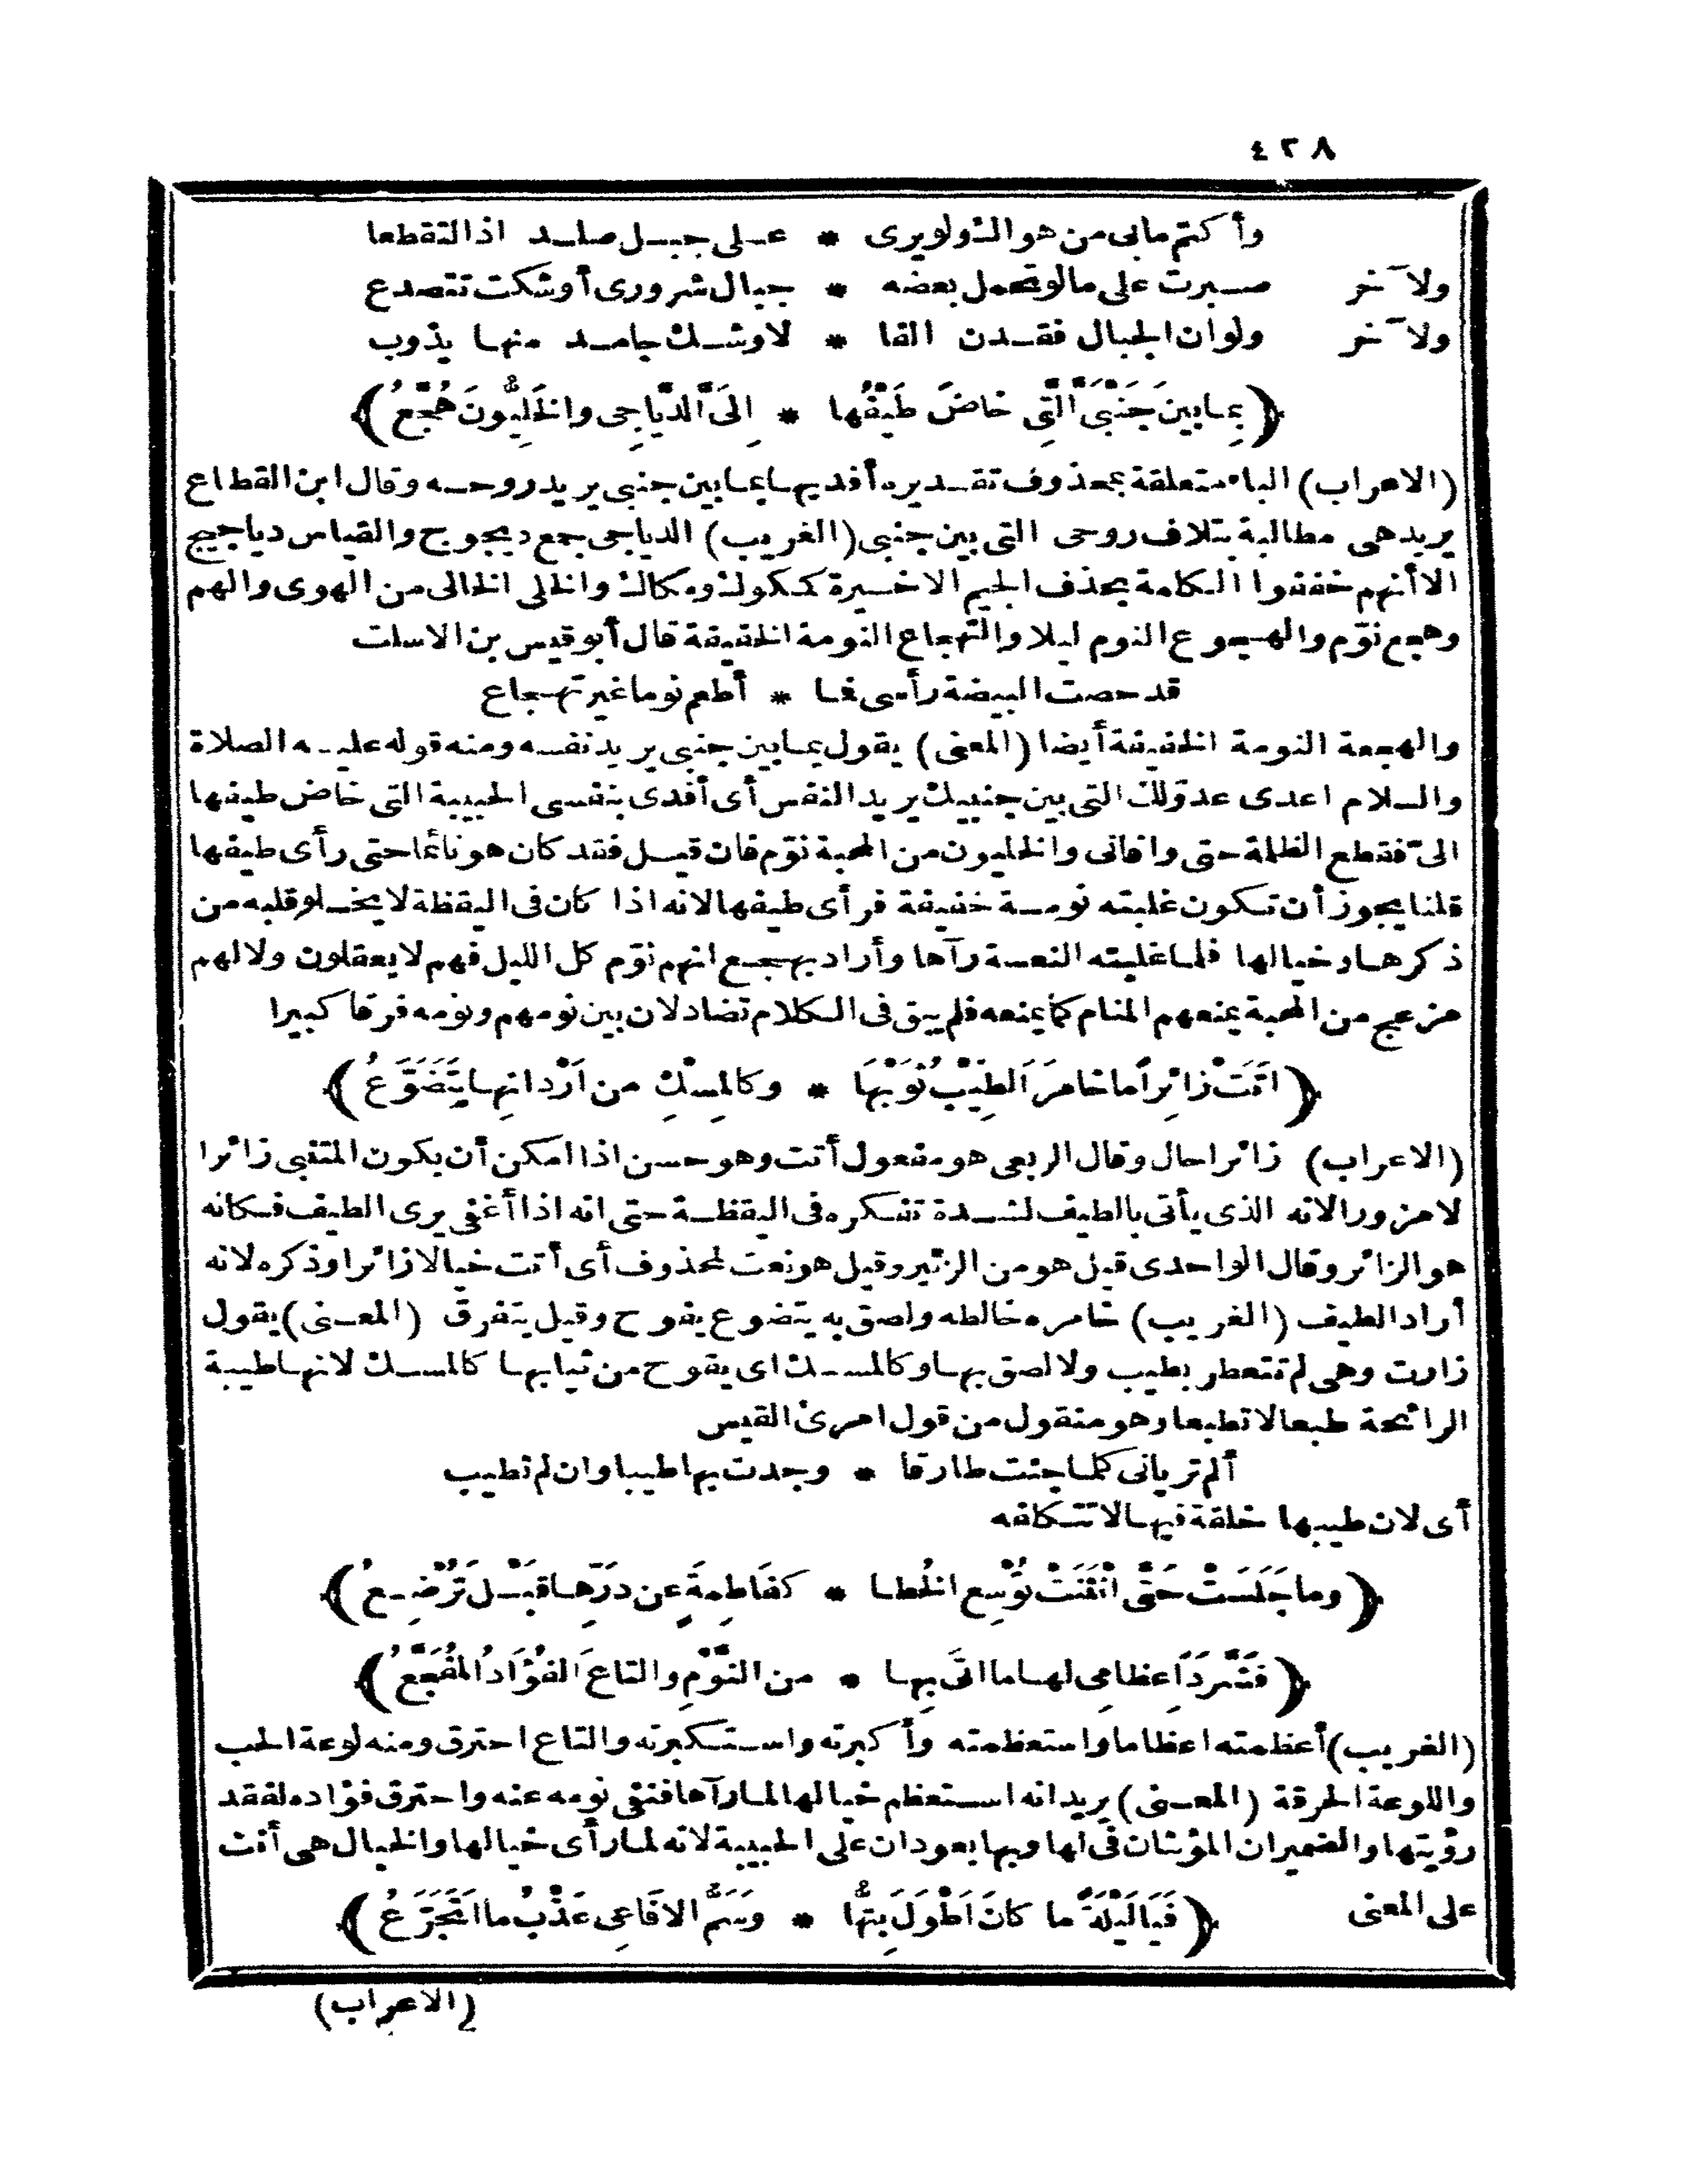 ٤٢٨
وأكتم مابى من هواك ولو يرى * على جبل صلد اذا لتقطعا
ولآخر صبرت على مالو تحمل بعضه * جبال شرورى أوشكت تتصدع
ولآخر ولو ان الجبال فقدن القا * لاوشك جامد منها يذوب
﴿بِمابينَ جَنْبَىَّ الَّتِى خاضَ طَيْفُها * اِلَىَّ الدَّياجِى والخَلِيُّونَ هُجَّعُ﴾
(الاعراب) الباء متعلقة بمحذوف تقديره أفديها بما بين جنبى يريد روحه وقال ابن القطاع
يريد هى مطالبة بتلاف روحى التى بين جنبى (الغريب) الدياجى جمع ديجوج والقياس دياجيج
الا أنهم خففوا الكلمة بحذف الجيم الاخيرة كمكوك ومكاك والخلى الخالى من الهوى والهم
وهجع نوّم والهجوع النوم ليلا والتهجاع النومة الخفيفة قال أبو قيس بن الاسلت
قد حصت البيضة رأسى فما * أطعم نوما غير تهجاع
والهجعة النومة الخفيفة أيضا (المعنى) يقول بما بين جنبى يريد نفسه ومنه قوله عليه الصلاة
والسلام اعدى عدوّك التى بين جنبيك يريد النفس أى أفدى بنفسى الحبيبة التى خاض طيفها
الىّ فقطع الظلمة حتى وافانى والخليون من المحبة نوّم فان قيل فقد كان هو نائما حتى رأى طيفها
قلنا يجوز أن تكون غلبته نومة خفيفة فرأى طيفها لانه اذا كان فى اليقظة لا يخلو قلبه من
ذكرها وخيالها فلما غلبته النعسة رآها وأراد بهجع انهم نوّم كل الليل فهم لا يعقلون ولا لهم
مزعج من المحبة يمنعهم المنام كما يمنعه فلم يبق فى الكلام تضاد لان بين نومهم ونومه فرقا كبيرا
﴿اَتَتْ زائِراً ما خامرَ الطِيْبُ ثَوْبَها * وكالمِسْكِ من اَرْدانِها يَتَضَوَّعُ﴾
(الاعراب) زائرا حال وقال الربعى هو مفعول أتت وهو حسن اذا امكن أن يكون المتنبى زائرا
لا مزورا لانه الذى يأتى بالطيف لشدة تفكره فى اليقظة حتى انه اذا أغفى يرى الطيف فكانه
هو الزائر وقال الواحدى قيل هو من الزئير وقيل هو نعت لمحذوف أى أتت خيالا زائرا وذكره لانه
أراد الطيف (الغريب) خامره خالطه ولصق به يتضوع يفوح وقيل يتفرق (المعنى) يقول
زارت وهى لم تتعطر بطيب ولا لصق بها وكالمسك اى يفوح من ثيابها كالمسك لانها طيبة
الرائحة طبعا لا تطبعا وهو منقول من قول امرئ القيس
ألم تريانى كلما جئت طارقا * وجدت بها طيبا وان لم تطيب
أى لان طيبها خلقة فيها لا تتكلفه
﴿وما جَلَسَتْ حَتَّى انْثَنَتْ تُوْسِع الخُطا * كفَاطِمةٍ عن دَرِّها قَبْلَ تُرْضِعُ﴾
﴿فَشَرَّدَ اِعظامِى لها ما اَتَى بِها * من النَّوْمِ والتاعَ الفُؤَادُ المُفَجَّعُ﴾
(الغريب) أعظمته اعظاما واستعظمته وأكبرته واستكبرته والتاع احترق ومنه لوعة الحب
واللوعة الحرقة (المعنى) يريد انه استعظم خيالها لما رآها فنفى نومه عنه واحترق فؤاده لفقد
رؤيتها والضميران المؤنثان فى لها وبها يعودان على الحبيبة لانه لما رأى خيالها والخيال هى أنت
على المعنى ﴿فَيَا لَيْلَةً ما كانَ اَطْوَلَ بِتُّها * وسَمُّ الافَاعِى عَذْبُ ما اَتَجَرَّعُ﴾
(الاعراب)